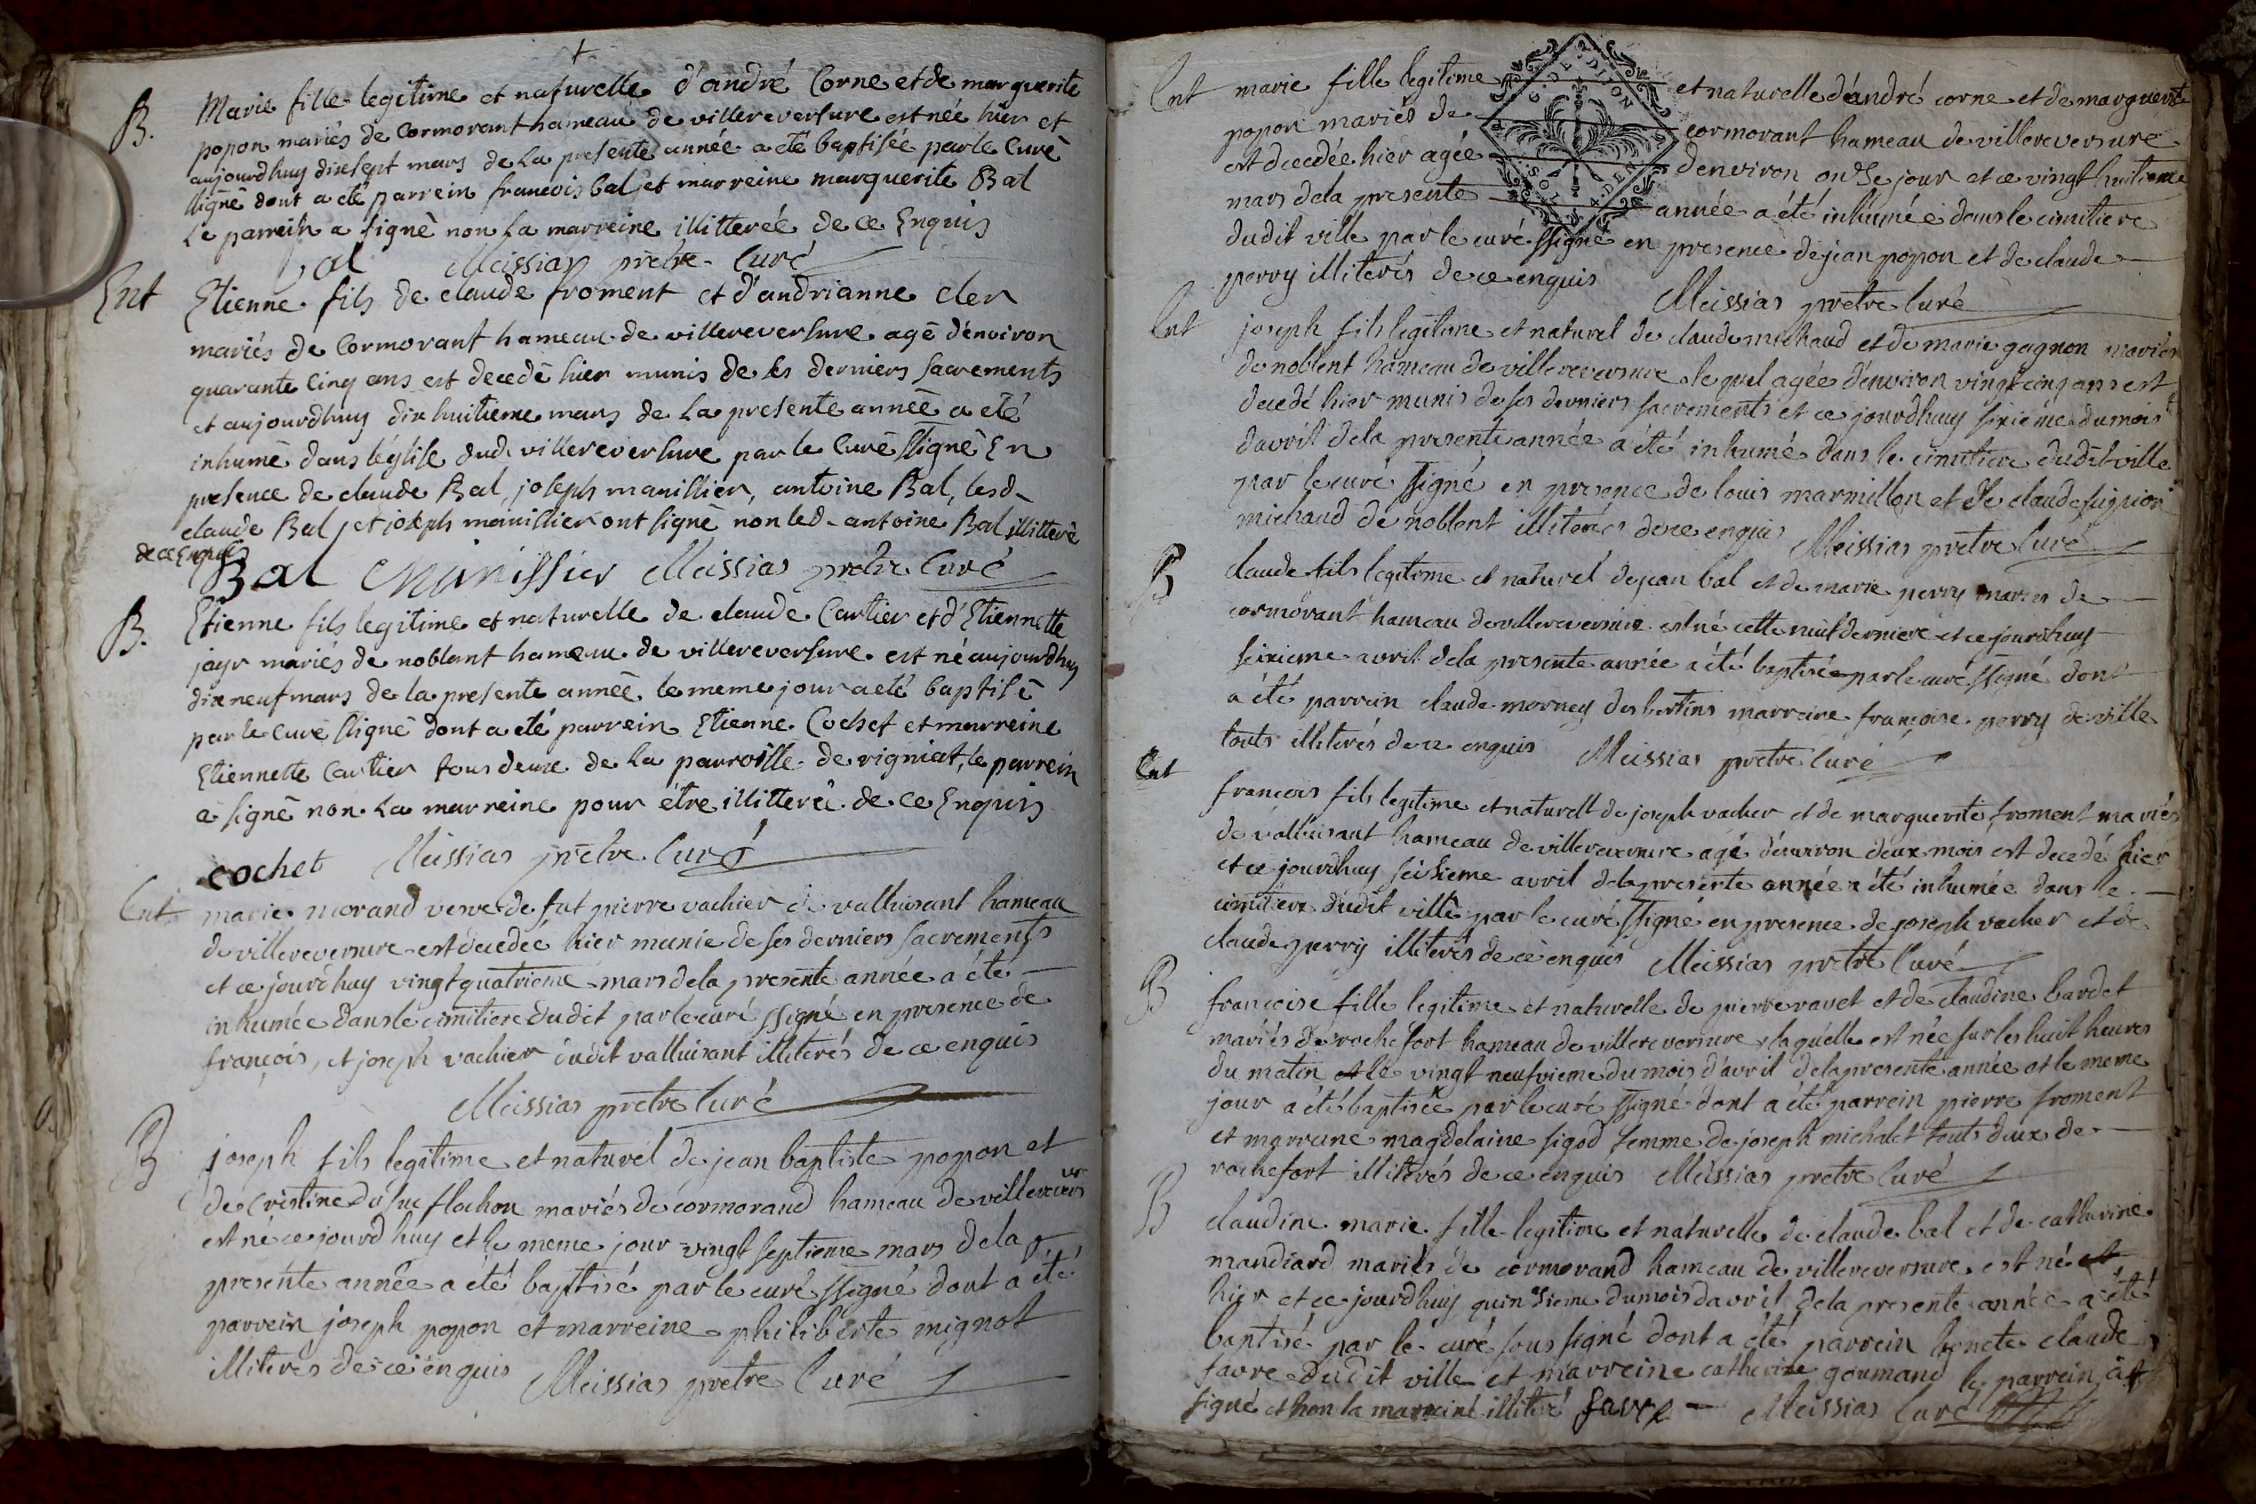 +
B. Marie fille legitime et naturelle d'andré Corne et de marguerite
popon mariés de Cormorant hameau de villereversure est née hier et
aujourdhuy dixsept mars de La presente année a eté baptisée par le Curé
ssigné dont a eté parrein francois bal, et marreine marguerite Bal
Le parrein a signé non La marreine illitereé de ce Enquis
Bal Meissias prêtre Curé
Ent Etienne fils de claude froment et d'andrianne cler
mariés de Cormorant hameau de villereversure agé d'environ
quarante Cinq ans est decedé hier munis de ses derniers sacrements
et aujourdhuy dix huitieme mars de La presente année a eté
inhumé dans léglise dud. villereversure par le Curé ssigné En
presence de claude Bal, joseph manissier, antoine Bal, lesd.
claude Bal, et joseph manissier ont signé non led. antoine Bal illitteré
de ce Enquis
Bal Manissier Meissias prêtre Curé
B. Etienne fils legitime et naturelle de claude Cartier et d'Etiennette
jayr mariés de noblant hameau de villereversure est né aujourdhuy
dix neuf mars de la presente année le meme jour a eté baptisé
par le Curé ssigné dont a eté parrein Etienne Cochet et marreine
Etiennette Cartier tous deux de La parroisse de rigniat, le parrein
a signé non La marreine pour étre illitteré de ce Enquis
cochet Meissias prêtre Curé
Ent marie morand veve de fut pierre vachier de valluisant hameau
de villereversure est decedée hier munie de ses derniers sacrements
et ce jourdhuy vingt quatrieme mars dela presente année a été
inhumée dans le cimitiere dudit par le curé ssigné en presence de
françois, et joseph vachier dudit valluisant illiterés de ce enquis
Meissias prêtre Curé
B joseph fils legitime et naturel de jean baptiste popon et
de Cristine du suc flochon mariés de cormorand hameau de villerevers
est né ce jourdhuy et le meme jour vingt septieme mars dela
presente année a été baptisé par le curé ssigné dont a été
parrein joseph popon et marreine philiberte mignot
illiterés de ce enquis Meissias prêtre Curé
Ent marie fille legitime et naturelle d'andré corne et de marguerite
popon mariés de cormorant hameau de villereversure
est decedée hier agée d'environ onze jour et ce vingt huitieme
mars dela presente année a été inhumée dans le cimitiere
dudit ville par le curé ssigné en presence de jean popon et de claude
perry illiterés de ce enquis Meissias prêtre Curé
Ent joseph fils legitime et naturel de claude michaud et de marie gagnon mariés
de noblent hameau de villereversure lequel agée d'environ vingt cinq ans est
decedé hier munis de ses derniers sacrements et ce jourdhuy sixieme du mois
davril dela presente année a été inhumé dans le cimitiere dudit ville
par le curé ssigné en presence de louis marmillon et de claude
michaud de noblent illiterés de ce enquis Meissias prêtre Curé
B claude fils legitime et naturel de jean bal et de marie perry mariés de
cormorant hameau de villereversure est né cette nuit derniere et ce jourdhuy
sixieme avril dela presente année a été baptisée par le curé ssigné dont
a été parrein claude morney des bertins marreine françoise perry de ville
touts illiterés de ce enquis Meissias prêtre Curé
Ent francois fils legitime et naturell de joseph vacher et de marguerite froment mariés
de valluisant hameau de villereversure agé d'environ deux mois est decedé hier
et ce jourdhuy seizieme avril dela presente année a été inhumée dans le
cimitiere dudit ville par le curé ssigné en presence de joseph vacher et de
claude perry illiterés de ce enquis Meissias prêtre Curé
B françoise fille legitime et naturelle de pierre ravet et de claudine bardet
mariés de rochefort hameau de villereversure, laquelle est née sur les huit heures
du matin et le vingt neufvieme du mois d'avril dela presente année et le meme
jour a été baptisée par le curé ssigné dont a été parrein pierre froment
et marreine magdelaine sigod femme de joseph michalet touts deux de
rochefort illiterés de ce enquis Meissias prêtre Curé
B claudine marie fille legitime et naturelle de claude bal et de catherine
mandiard mariés de cormorand hameau de villereversure est né et
hier et ce jourdhuy quinzieme du mois davril dela presente année a été
baptisé par le curé sous signé dont a été parrein honete claude
favre dudit ville et marreine catherine gourmand le parrein a
signé et non la marreine illiteré favre Meissias Curé